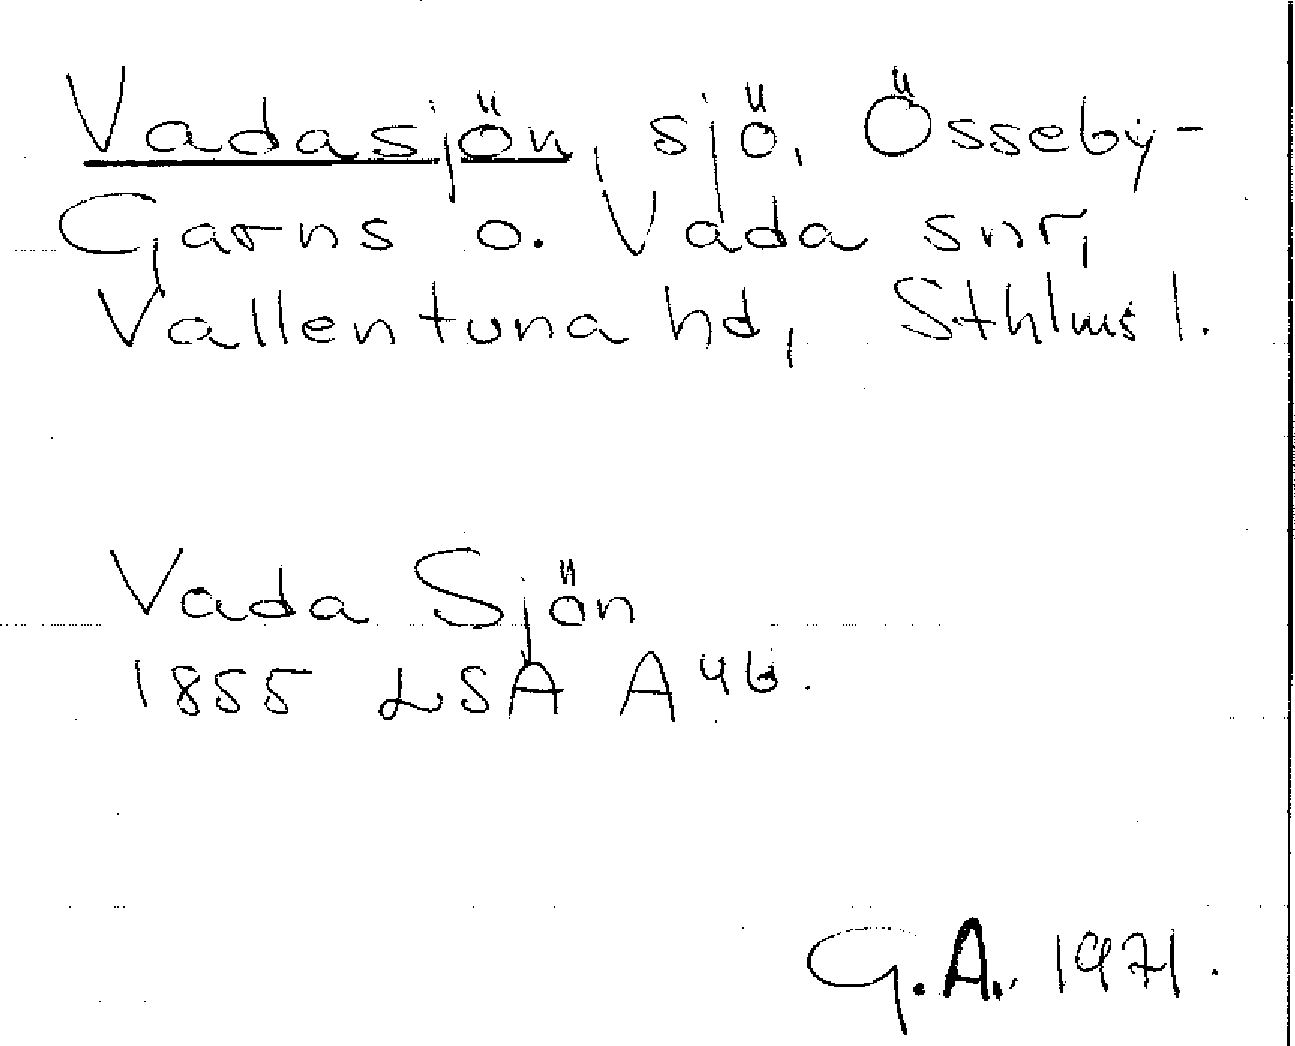 Vadasjön, sjö, Össeby-
Garns o. Vada snr,
Vallentuna hd, Sthlms l.
Vada Sjön
1855 LSA A 46.
G.A. 1971.